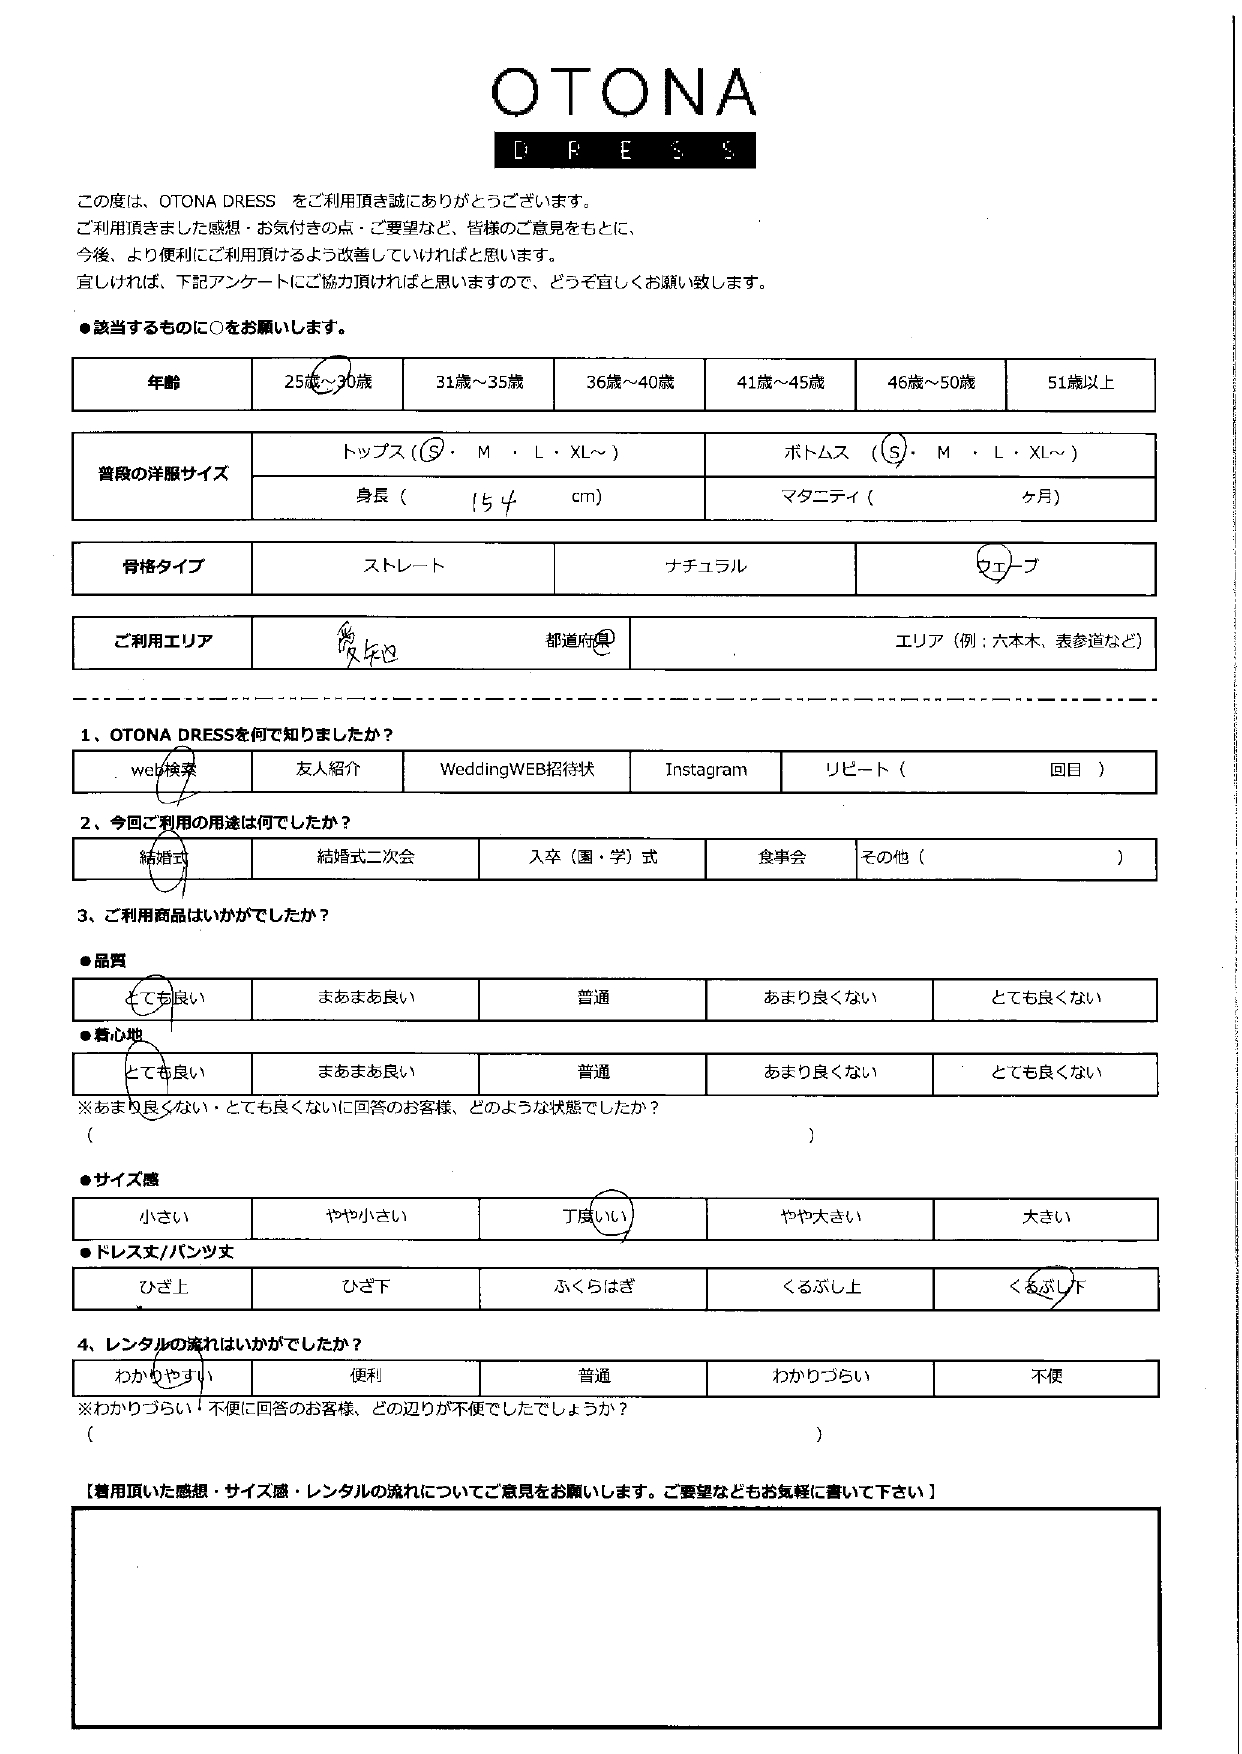 OTONA
DRESS
この度は、OTONA DRESS　をご利用頂き誠にありがとうございます。
ご利用頂きました感想・お気付きの点・ご要望など、皆様のご意見をもとに、
今後、より便利にご利用頂けるよう改善していければと思います。
宜しければ、下記アンケートにご協力頂ければと思いますので、どうぞ宜しくお願い致します。
●該当するものに○をお願いします。
年齢 25歳～30歳 31歳～35歳 36歳～40歳 41歳～45歳 46歳～50歳 51歳以上
普段の洋服サイズ
トップス (S・ M ・ L ・ XL～ ) ボトムス (S・ M ・ L ・ XL～ )
身長 ( 154 cm) マタニティ ( ケ月)
骨格タイプ ストレート ナチュラル ウェーブ
ご利用エリア 愛知 都道府県 エリア（例；六本木、表参道など）
1、OTONA DRESSを何で知りましたか？
web検索 友人紹介 WeddingWEB招待状 Instagram リピート（ 回目 ）
2、今回ご利用の用途は何でしたか？
結婚式 結婚式二次会 入卒（園・学）式 食事会 その他（ ）
3、ご利用商品はいかがでしたか？
●品質
とても良い まあまあ良い 普通 あまり良くない とても良くない
●着心地
とても良い まあまあ良い 普通 あまり良くない とても良くない
※あまり良くない・とても良くないに回答のお客様、どのような状態でしたか？
（ ）
●サイズ感
小さい やや小さい 丁度いい やや大きい 大きい
●ドレス丈/パンツ丈
ひざ上 ひざ下 ふくらはぎ くるぶし上 くるぶし下
4、レンタルの流れはいかがでしたか？
わかりやすい 便利 普通 わかりづらい 不便
※わかりづらい・不便に回答のお客様、どの辺りが不便でしたでしょうか？
（ ）
【着用頂いた感想・サイズ感・レンタルの流れについてご意見をお願いします。ご要望などもお気軽に書いて下さい】